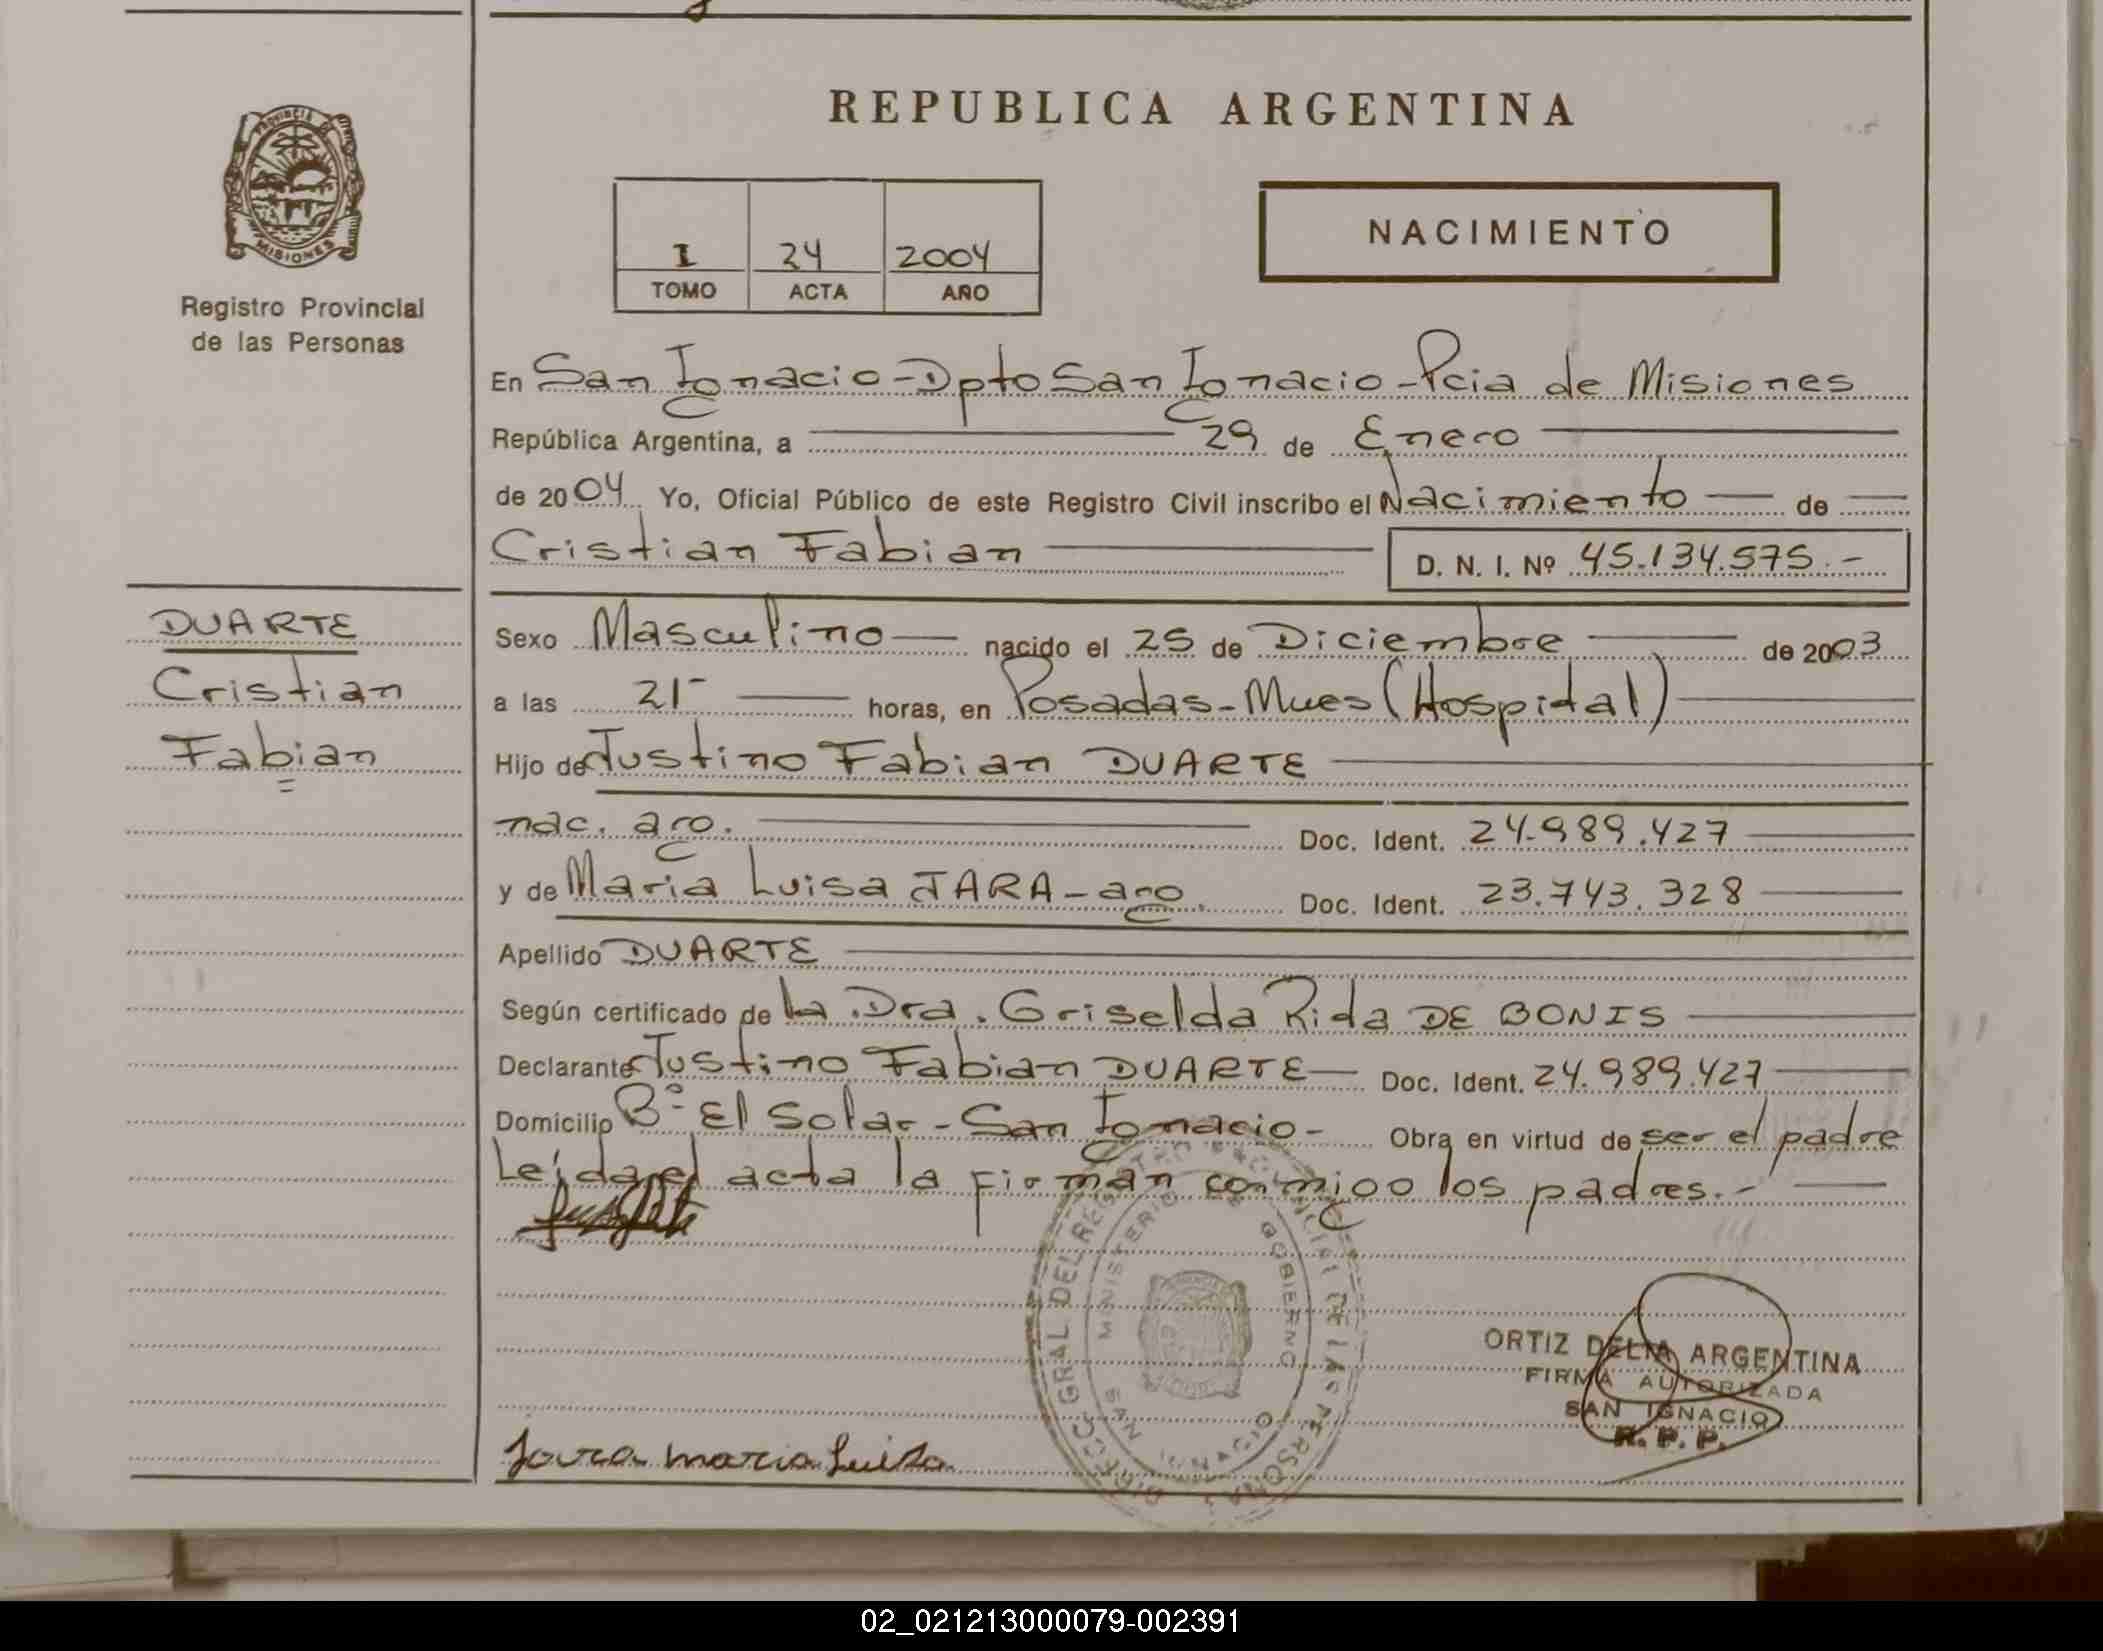 REPUBLICA ARGENTINA
PROVINCIA DE MISIONES
Registro Provincial
de las Personas
I 24 2004
TOMO ACTA AÑO
NACIMIENTO
En San Ignacio - Dpto San Ignacio - Pcia de Misiones
República Argentina, a 29 de Enero
de 2004 Yo, Oficial Público de este Registro Civil inscribo el Nacimiento de
Cristian Fabian D. N. I. Nº 45.134.575.-
DUARTE
Cristian
Fabian
Sexo Masculino nacido el 25 de Diciembre de 2003
a las 21- horas, en Posadas - Mnes (Hospital)
Hijo de Justino Fabian DUARTE
nac. arg. Doc. Ident. 24.989.427
y de Maria Luisa JARA - arg. Doc. Ident. 23.743.328
Apellido DUARTE
Según certificado de la Dra. Griselda Rida DE BONIS
Declarante Justino Fabian DUARTE Doc. Ident. 24.989.427
Domicilio Bº El Solar - San Ignacio - Obra en virtud de ser el padre
Leída el acta la firman conmigo los padres.-
DIRECC. GRAL DEL REGISTRO PROVINCIAL DE LAS PERSONAS
MINISTERIO DE GOBIERNO
SAN IGNACIO
ORTIZ DELIA ARGENTINA
FIRMA AUTORIZADA
SAN IGNACIO
R. P. P.
Jara maria Luisa
02_021213000079-002391